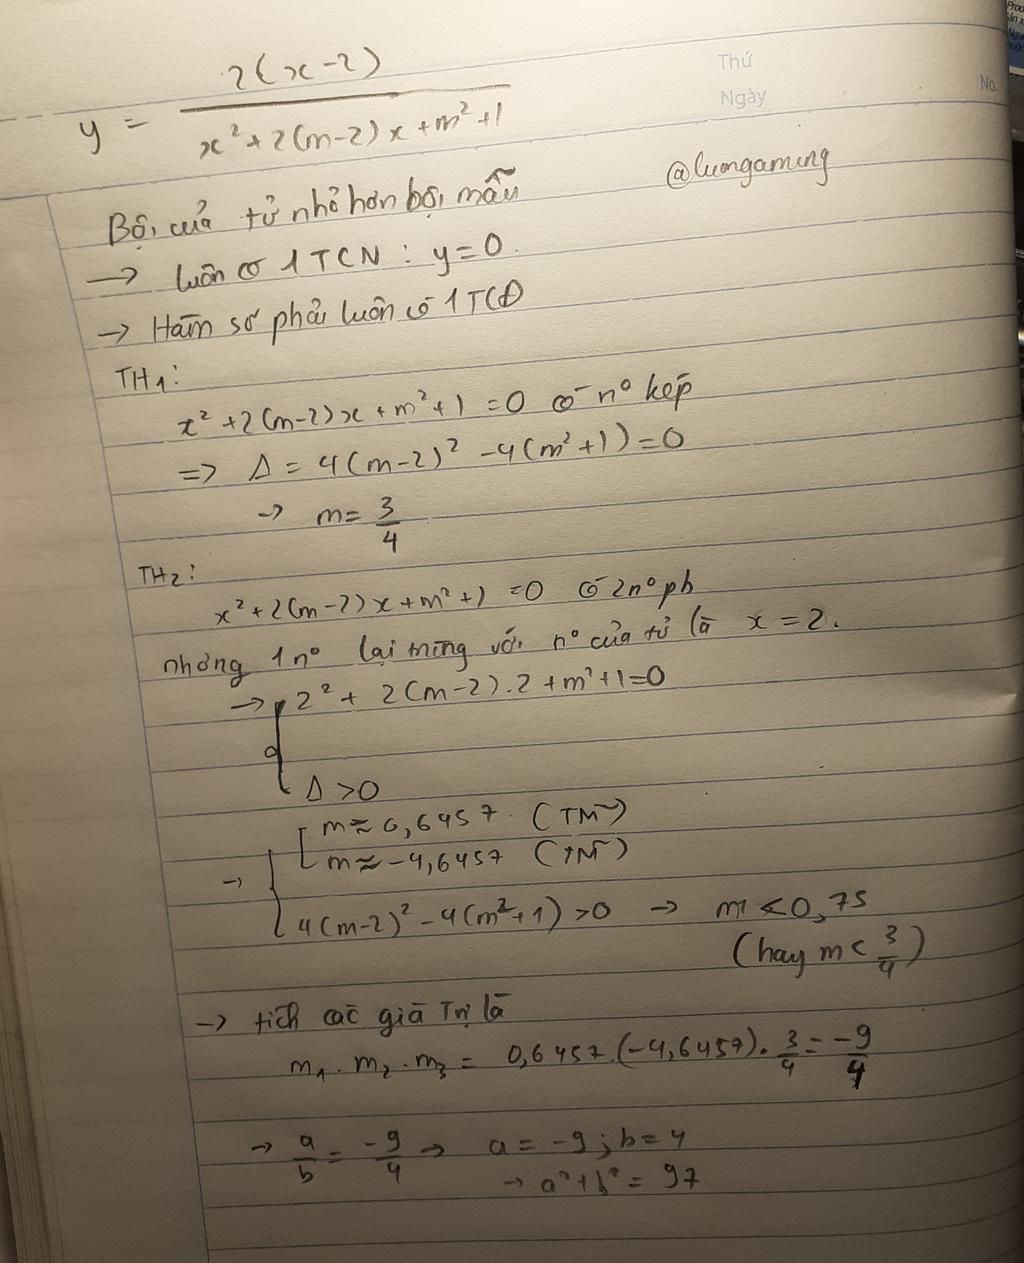 Thứ
Ngày
No.
y = 2(x-2) / x² + 2(m-2)x + m² + 1
@luongaming
Bội của tử nhỏ hơn bội mẫu
→ luôn có 1 TCN : y = 0.
→ Hàm số phải luôn có 1 TCĐ
TH1:
x² + 2(m-2)x + m² + 1 = 0 có n° kép
=> Δ = 4(m-2)² - 4(m²+1) = 0
→ m = 3/4
TH2:
x² + 2(m-2)x + m² + 1 = 0 có 2n° pb
nhưng 1 n° lại trùng với n° của tử là x = 2.
→ { 2² + 2(m-2).2 + m² + 1 = 0
Δ > 0
→ { [ m ≈ 0,6457. (TM)
m ≈ -4,6457 (TM)
4(m-2)² - 4(m²+1) > 0 → m < 0,75
(hay m < 3/4)
→ tích các giá trị là
m1 . m2 . m3 = 0,6457.(-4,6457). 3/4 = -9/4
→ a/b = -9/4 → a = -9 ; b = 4
→ a² + b² = 97